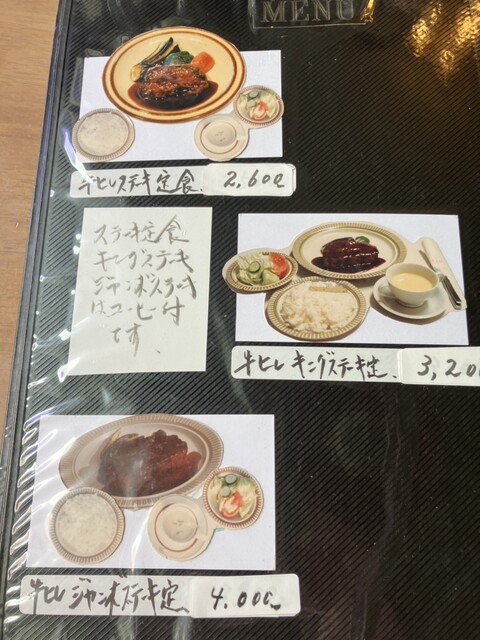 MENU
牛ヒレステキ定食 2,600
ステーキ定食
キングステーキ
ジャンボステーキ
はコーヒー付
です。
牛ヒレ キングステーキ定 3,200
牛ヒレ ジャンボステーキ定 4,000